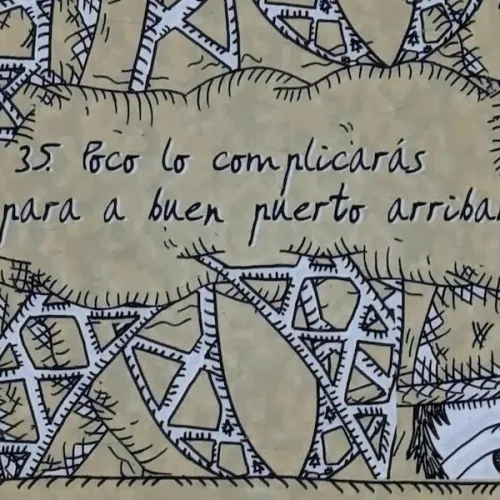 35. Poco lo complicarás
para a buen puerto arribar